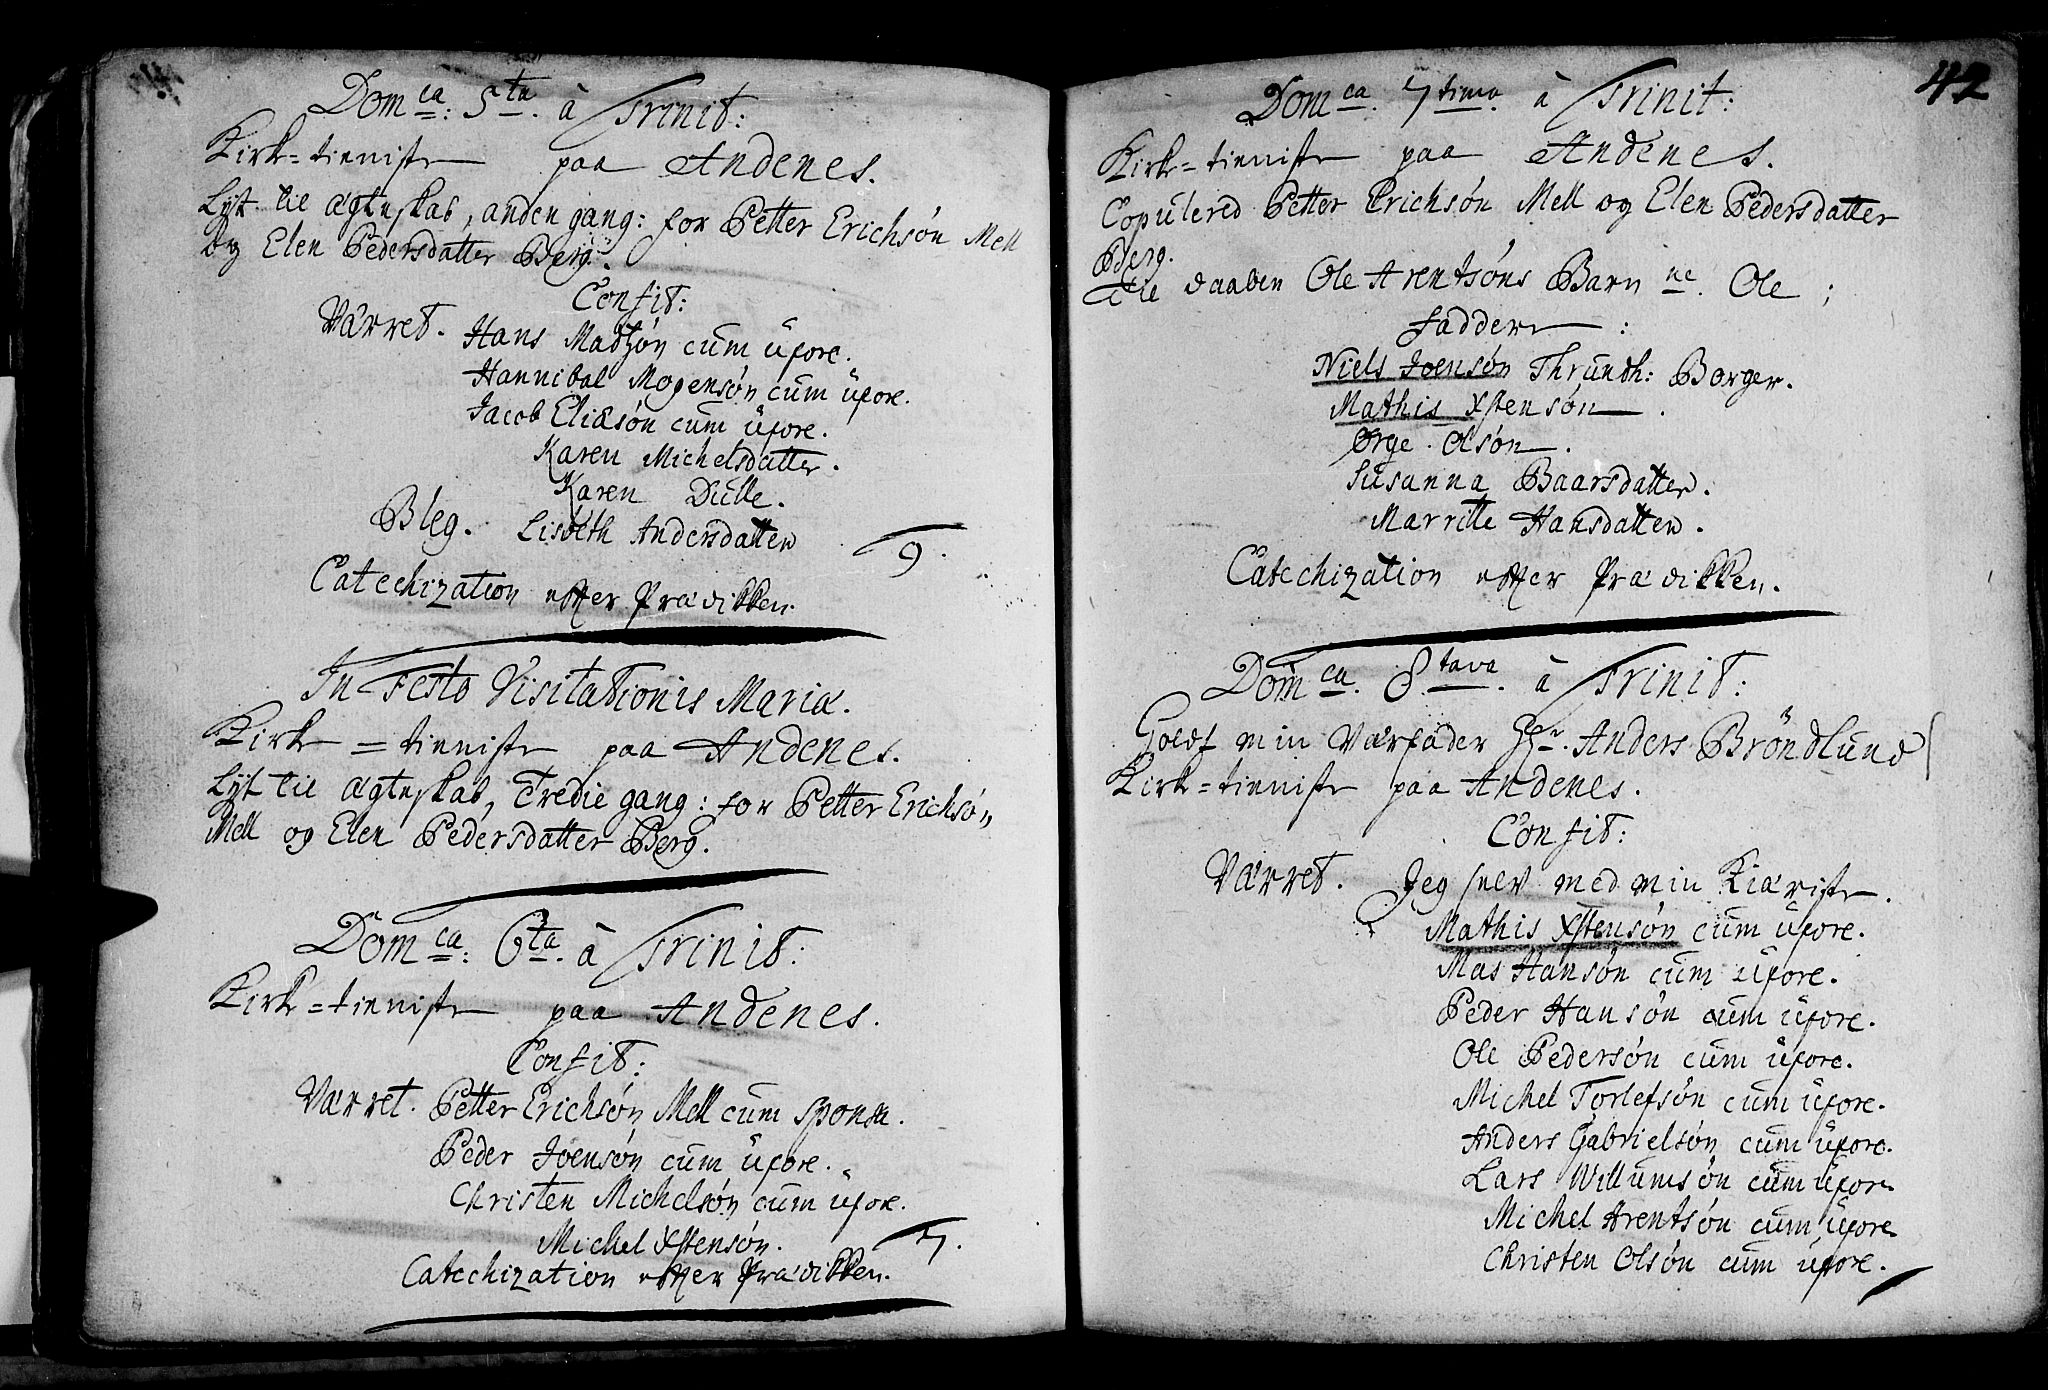 Dom ca: 5 ta. à Trinit:
Kirk-tienniste paa Andenes.
Lyst til ægteskab, anden gang: for Petter Erichsøn Mell
og Elen Pedersdatter Berg.
Confit:
Værret. Hans Madsøn cum üxore.
Hannibal Mogensøn cum üxore.
Jacob Eliæsøn cum üxore.
Karen Michelsdatter.
Karen Dülle.
Bleg. Lisbeth Andersdatter
9.
Catechization efter Prædikken.
In Festo Visitationis Mariæ.
Kirke=tienniste paa Andenes.
Lyst til ægteskab, Tredie gang: for Petter Erichsøn
Mell og Elen Pedersdatter Berg.
Dom ca: 6 ta. à Trinit:
Kirke=tienniste paa Andenes.
Confit:
Værret. Petter Erichsøn Mell cum sponsa.
Peder Joensøn cum üxore.
Christen Michelsøn cum üxore.
Michel Xstensøn.
7.
Catechization efter Prædikken.
42
Dom ca. 7 tima à Trinit:
Kirk-tienniste paa Andenes.
Copulered Petter Erichsøn Mell og Elen Pedersdatter
Berg.
Til daaben Ole Arentsøns Barn ne. Ole ;
Faddere :
Niels Joensøn Thrundh: Borger.
Mathis Xstensøn.
Ørge Olsøn.
Susanna Baarsdatter.
Marritte Hansdatter.
Catechization efter Prædikken.
Dom ca. 8 tava. à Trinit:
Holdt min Værfader Hr. Anders Bröndlund
Kirk=tienniste paa Andenes.
Confit:
Værret. Jeg selv med min Kiæriste.
Mathis Xstensøn cum üxore.
Mas Hansøn cum üxore.
Peder Hansøn cum üxore.
Ole Pedersøn cum üxore.
Michel Torlefsøn cum üxore.
Anders Gabrielsøn cum üxore.
Lars Willumsøn cum üxore
Michel Arentsøn cum üxore
Christen Olsøn cum üxore.